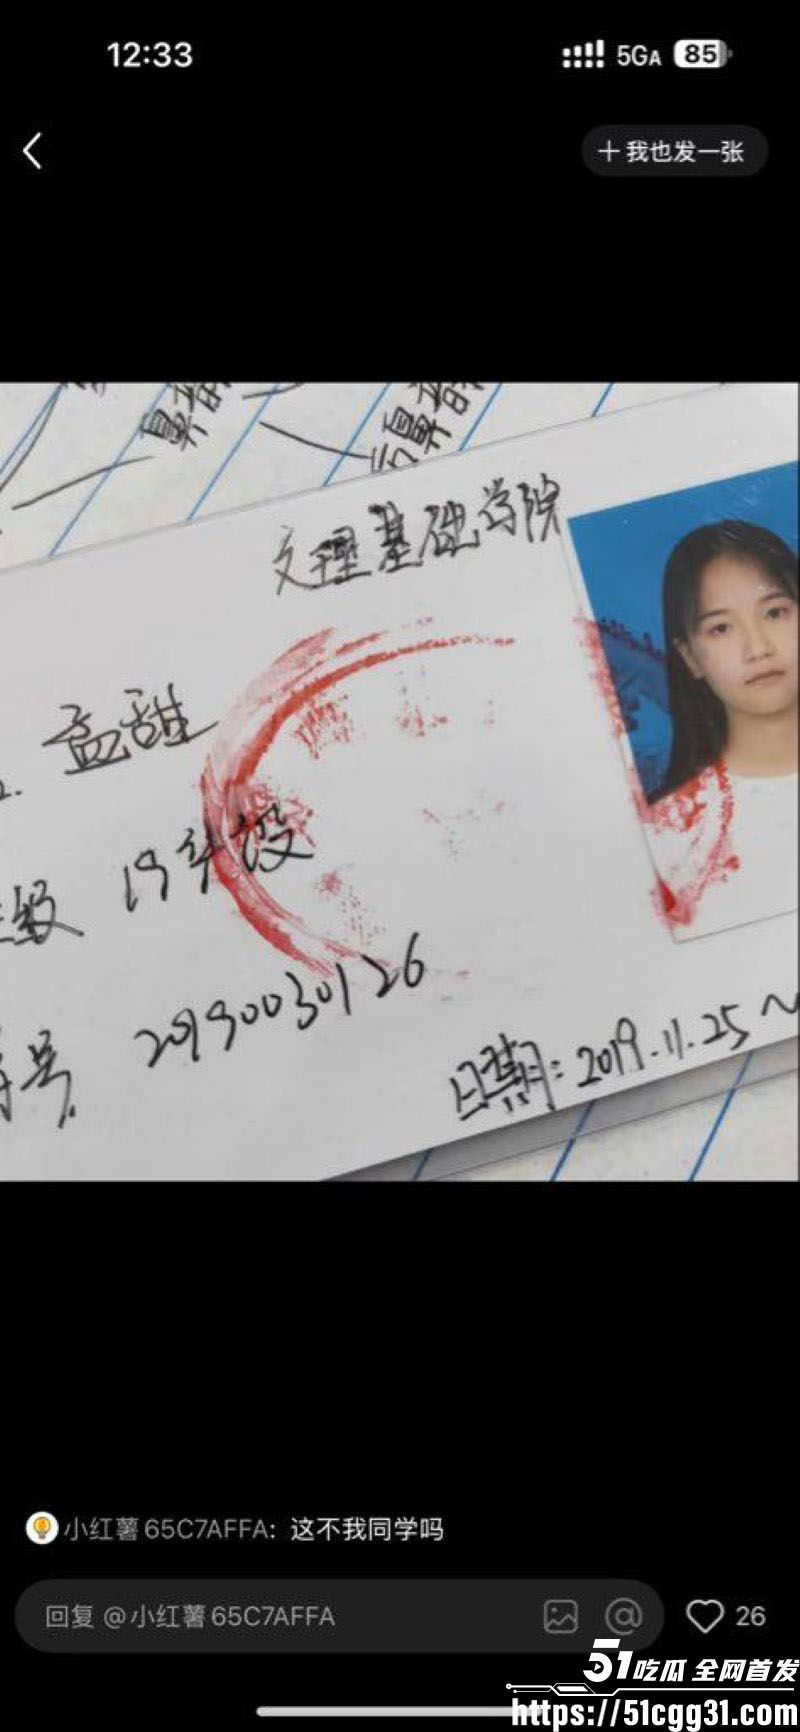 12:33
5GA 85
我也发一张
鼻音
鼻音
文理基础学院
孟甜
级 19年级
号 20190030126
日期:2019.11.25~
小红薯65C7AFFA: 这不我同学吗
回复 @小红薯65C7AFFA
26
51吃瓜 全网首发
https://51cgg31.com